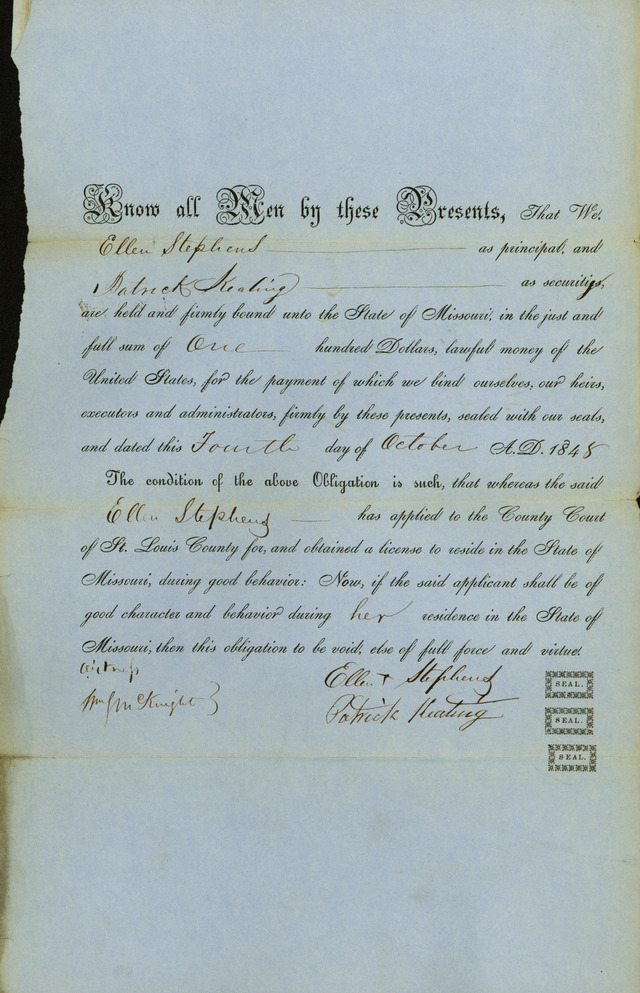 Know all Men by these Presents, That We,
Ellen Stephens as principal, and
Patrick Keating as securities,
are held and firmly bound unto the State of Missouri, in the just and
full sum of One hundred Dollars, lawful money of the
United States, for the payment of which we bind ourselves, our heirs,
executors and administrators, firmly by these presents, sealed with our seals,
and dated this Fourth day of October A.D. 1848
The condition of the above Obligation is such, that whereas the said
Ellen Stephens has applied to the County Court
of St. Louis County for, and obtained a license to reside in the State of
Missouri, during good behavior: Now, if the said applicant shall be of
good character and behavior during her residence in the State of
Missouri, then this obligation to be void, else of full force and virtue.
Witness
Ellen + Stephens SEAL.
Wm McKnight
Patrick Keating SEAL.
SEAL.